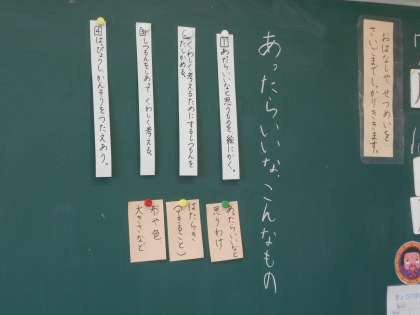 おはなしや せつめいを
さいごまでしっかりききます。
あったらいいな、こんなもの
1 あったらいいなと思うものを 絵にかく。
くわしく考えるためにするしつもんを
たしかめる。
3 しつもんをしあって、くわしく考える。
4 はっぴょうし、かんそうをつたえあう。
あったらいいなと
思うわけ
はたらき
(できること)
形や色
大きさなど